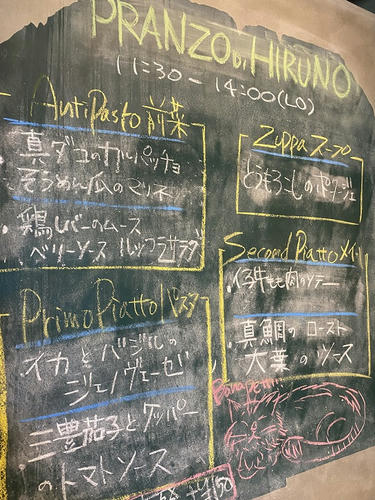 PRANZO di HIRUNO
11:30-14:00(LO)
AntiPasto 前菜
真ダコのカルパッチョ
そうめん瓜のマリネ
鶏レバーのムース
ベリーソース ルッコラサラダ
Zuppa スープ
とうもろこしのポタージュ
Primo Piatto パスタ
イカとバジルの
ジェノヴェーゼ
三豊茄子とケッパー
のトマトソース
Second Piatto メイン
牛もも肉のソテー
真鯛のロースト
大葉のソース